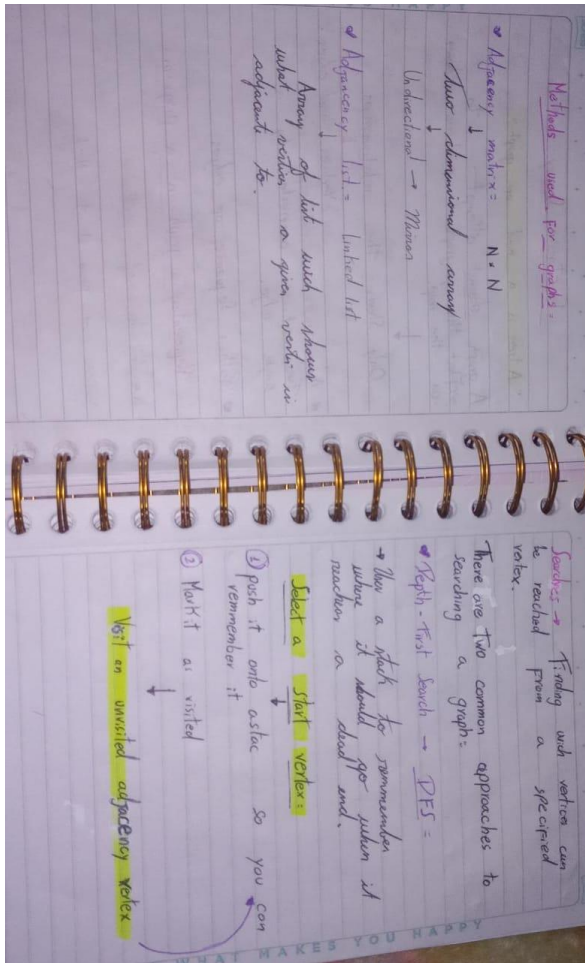 Methods used For graphs =
• Adjacency matrix = N * N
↓
Two dimensional array
↓
Undirectional → Mirror
• Adjancency list = Linked list
↓
Array of list wich shows
what vertices a given verti is
adjacente to.
Searches → Finding wich vertices can
be reached from a specified
vertex.
There are two common approaches to
searching a graph =
• Depth-First Search → DFS =
→ Use a stack to remmember
where it should go when it
reaches a dead end.
Select a start vertex =
↓
① push it onto astac so you can
remmember it
② Mark it as visited
↓
Visit an unvisited adjacency vertex
WHAT MAKES YOU HAPPY